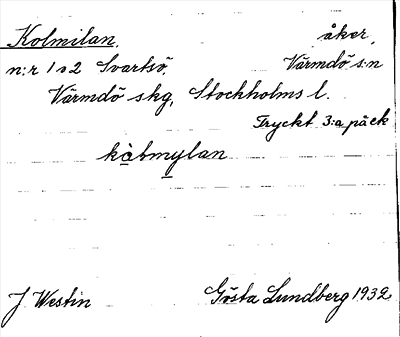 Kolmilan. åker,
n:r 1 o 2 Svartsö. Värmdö s:n
Värmdö skg, Stockholms l.
Tryckt 3:a päck
kålmylan
J Westin Gösta Lundberg 1932